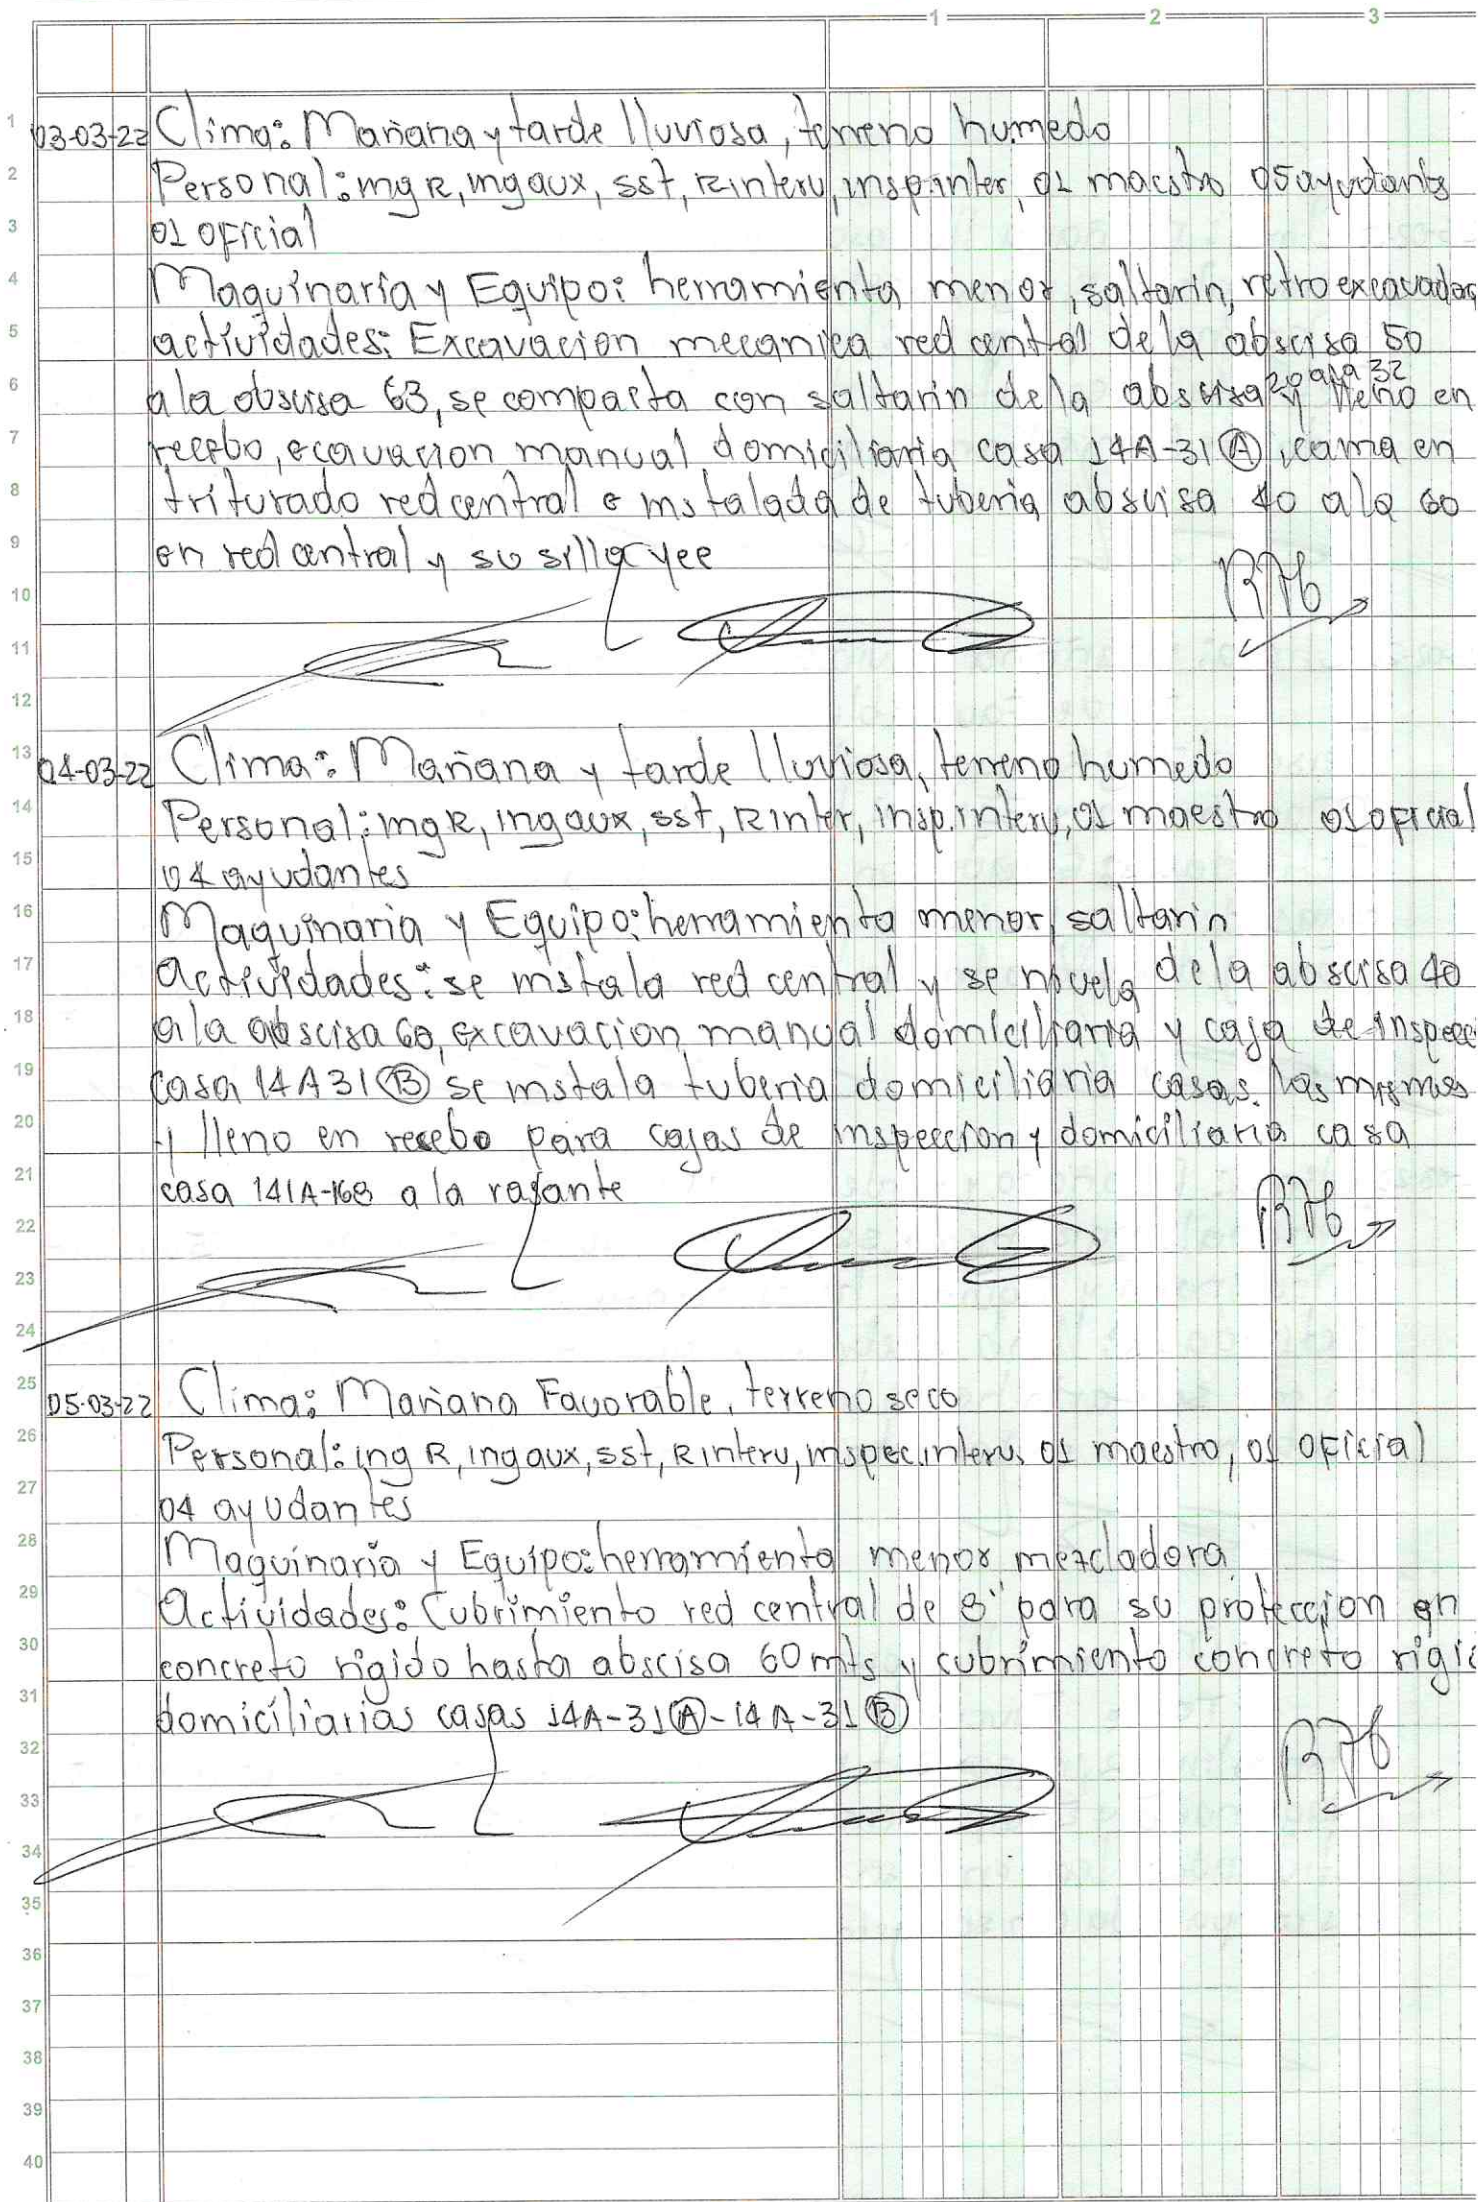 1 2 3
1 03-03-22 Clima: Mañana y tarde lluviosa, terreno humedo
2 Personal: ing R, ing aux, sst, R interv, insp.inter, 01 maestro 05 ayudantes
3 01 oficial
4 Maquinaria y Equipo: herramienta menor, saltarin, retroexcavadora
5 actividades: Excavacion mecanica red central de la abscisa 50
6 a la abscisa 63, se compacta con saltarin de la abscisa 20 a la 32 y lleno en
7 recebo, excavacion manual domiciliaria casa 14A-31 (A), cama en
8 triturado red central e instalada de tuberia abscisa 40 a la 60
9 en red central y su silla yee
10
11
12
13 04-03-22 Clima: Mañana y tarde lluviosa, terreno humedo
14 Personal: ing R, ing aux, sst, R inter, insp.interv, 01 maestro 01 oficial
15 04 ayudantes
16 Maquinaria y Equipo: herramienta menor, saltarin
17 Actividades: se instala red central y se nivela de la abscisa 40
18 a la abscisa 60, excavacion manual domiciliaria y caja de inspecci
19 casa 14A31 (B) se instala tuberia domiciliaria casas las mismas
20 y lleno en recebo para cajas de inspeccion y domiciliaria casa
21 casa 141A-168 a la rasante
22
23
24
25 05-03-22 Clima: Mañana Favorable, terreno seco
26 Personal: ing R, ing aux, sst, R interv, inspec.interv, 01 maestro, 01 oficial
27 04 ayudantes
28 Maquinaria y Equipo: herramienta menor mezcladora
29 Actividades: Cubrimiento red central de 8" para su proteccion en
30 concreto rigido hasta abscisa 60 mts y cubrimiento concreto rigi
31 domiciliarias casas 14A-31 (A) - 14A-31 (B)
32
33
34
35
36
37
38
39
40